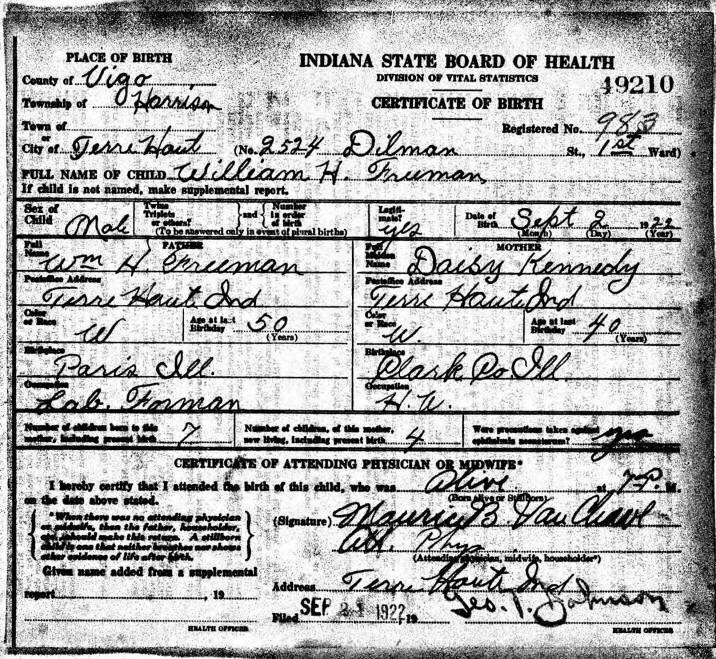 PLACE OF BIRTH
INDIANA STATE BOARD OF HEALTH
County of Vigo
DIVISION OF VITAL STATISTICS
49210
Township of Harrison
CERTIFICATE OF BIRTH
Town of
or
Registered No. 983
City of Terre Haut (No. 2524 Dilman St., 1st Ward)
FULL NAME OF CHILD William H. Freeman
If child is not named, make supplemental report.
Sex of Child Male
Twins Triplets or others? and Number in order of birth
(To be answered only in event of plural births)
Legiti- mate? yes
Date of Birth Sept 2 1922
(Month) (Day) (Year)
FATHER
Full Name Wm H. Freeman
MOTHER
Full Maiden Name Daisy Kennedy
Postoffice Address
Terre Haut Ind
Postoffice Address
Terre Haut Ind
Color or Race W
Age at last Birthday 50
(Years)
Color or Race W.
Age at last Birthday 40
(Years)
Birthplace
Paris Ill.
Birthplace
Clark Co Ill.
Occupation
Lab. Forman
Occupation
H.W.
Number of children born to this mother, including present birth 7
Number of children, of this mother, now living, including present birth 4
Were precautions taken against ophthalmia neonatorum? yes
CERTIFICATE OF ATTENDING PHYSICIAN OR MIDWIFE*
I hereby certify that I attended the birth of this child, who was Alive at 7 P. M.
on the date above stated.
(Born Alive or Stillborn)
*When there was no attending physician
or midwife, then the father, householder,
etc., should make this return. A stillborn
child is one that neither breathes nor shows
other evidence of life after birth.
(Signature) Maurice B. Van Cleave
Att. Phys
(Attending physician, midwife, householder*)
Given name added from a supplemental
report , 19
Address Terre Haute Ind
Geo. T. Johnson
Filed SEP 1922, 19
HEALTH OFFICER
HEALTH OFFICER